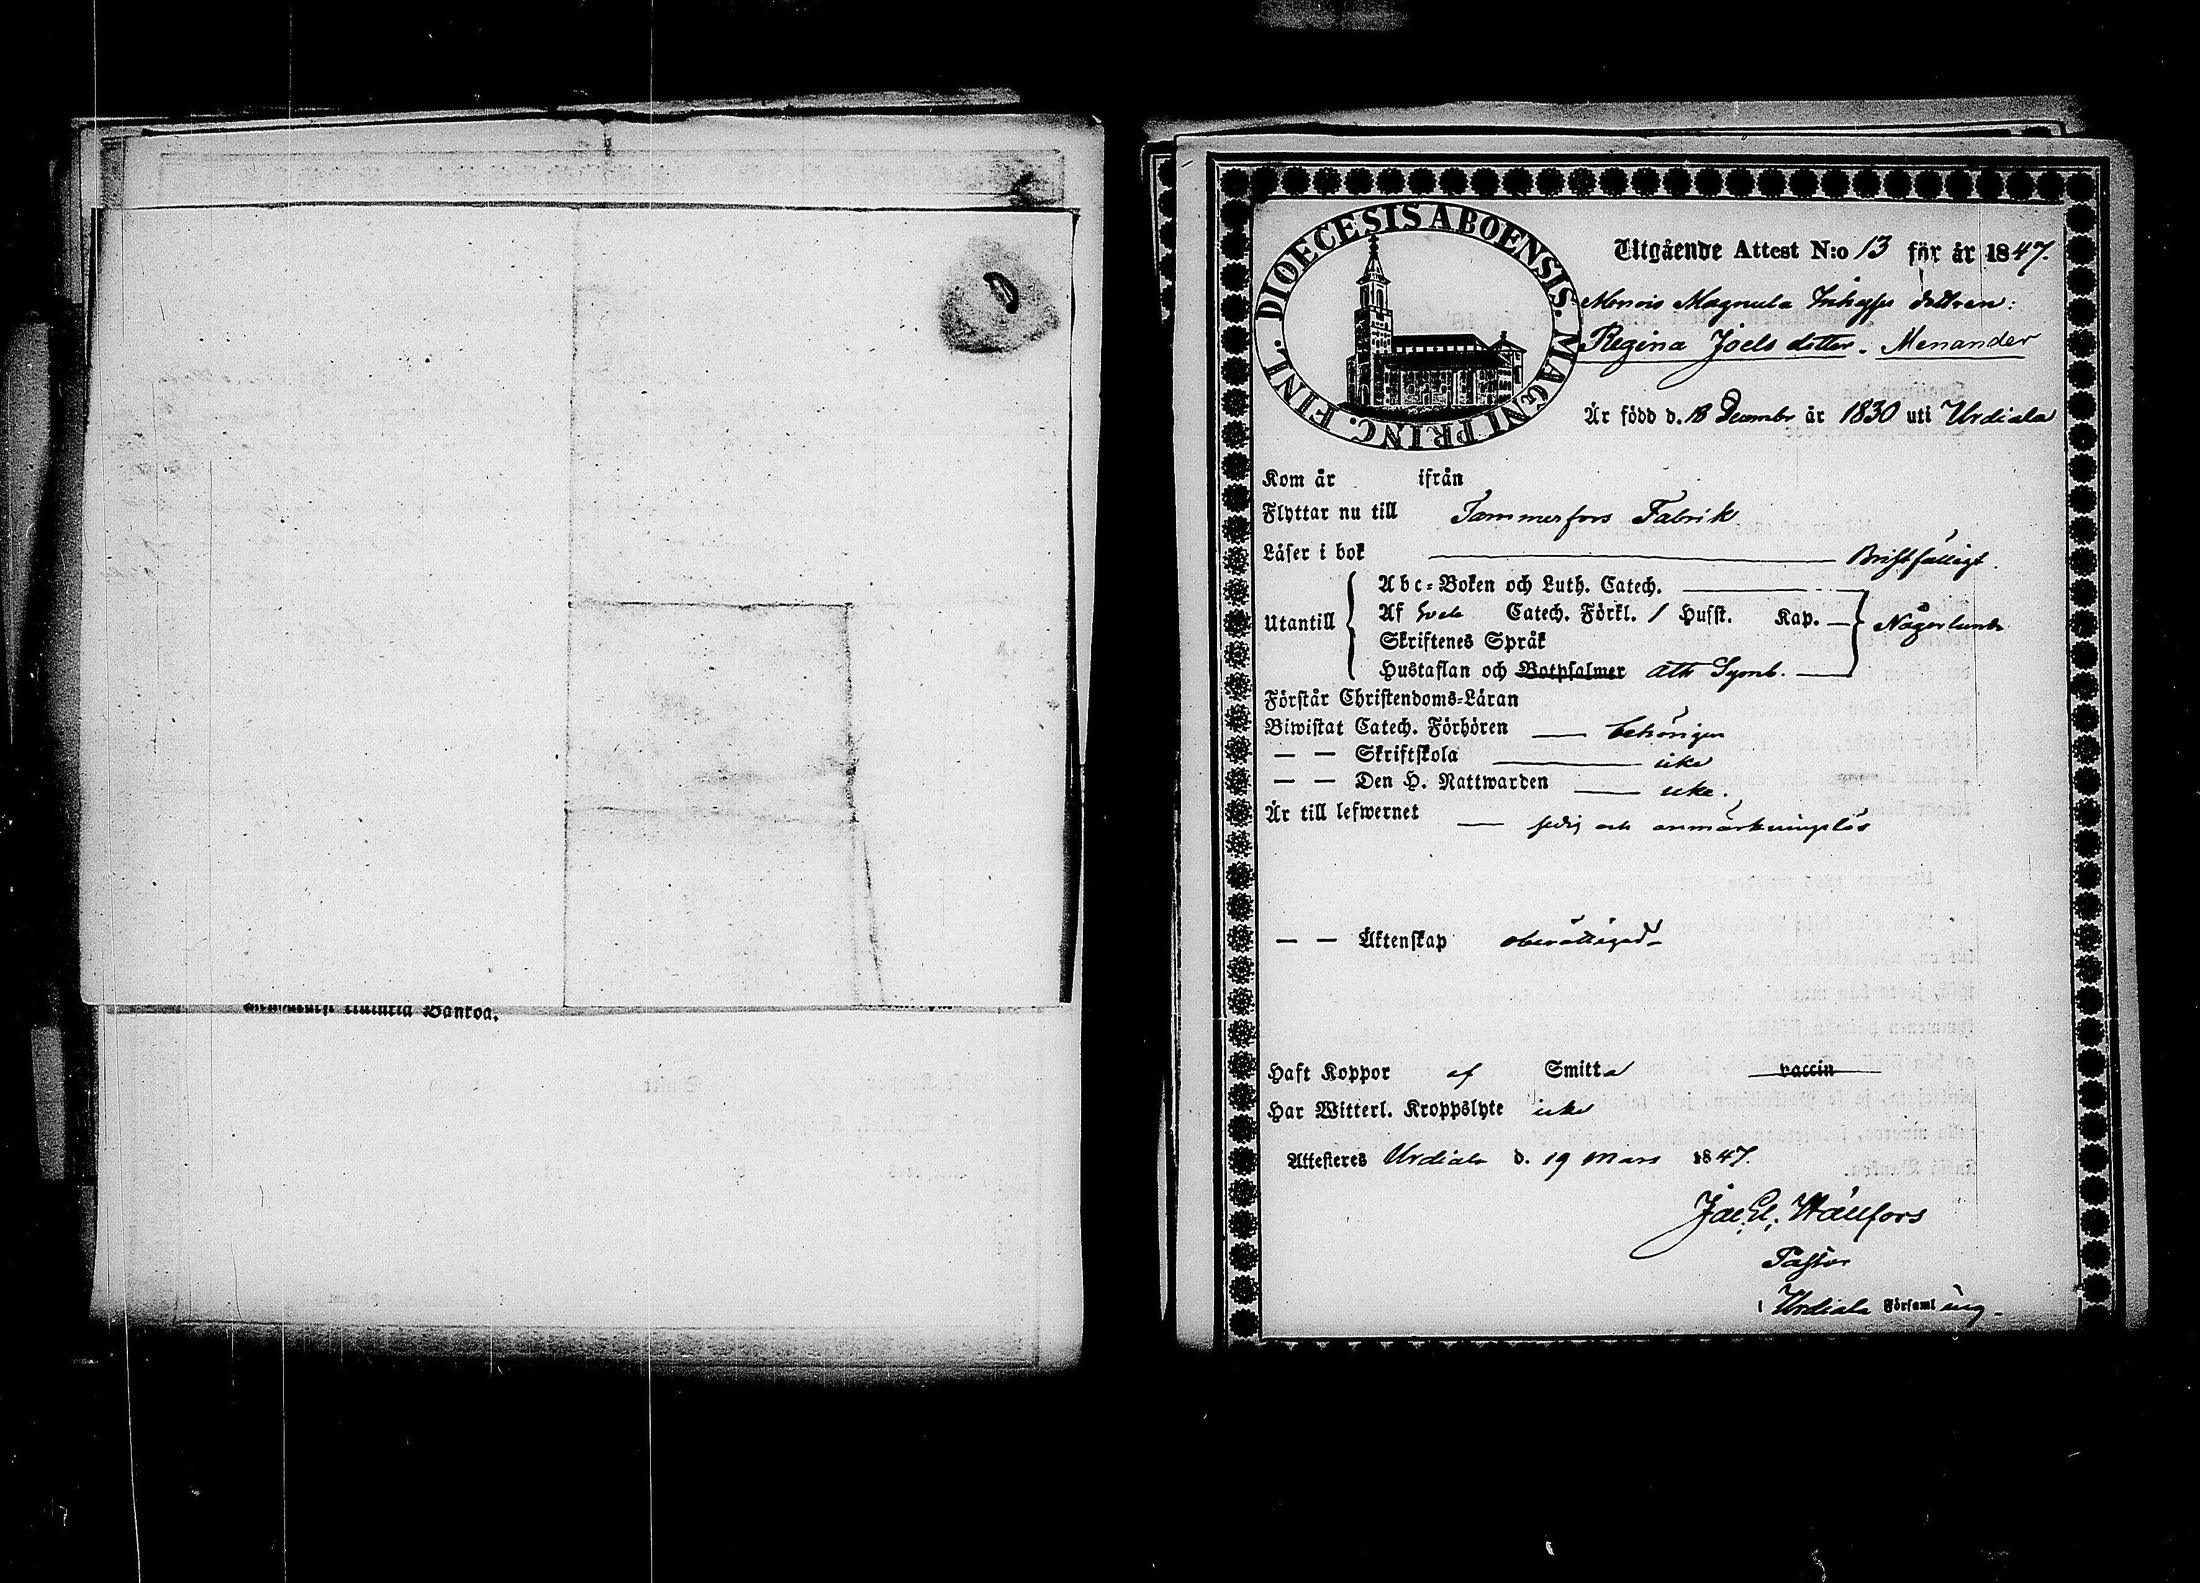 Bankoa.
DIOECESIS ABOENSIS. MAGNI PRINC. FINL.
Utgående Attest N:o 13 för år 1847.
Menois Magnula dottren:
Regina Joels dotter. Menander
Är född d. 18 Decembr år 1830 uti Urdiala
Kom år ifrån
Flyttar nu till Tammerfors Fabrik
Läser i bok Bristfälligt.
Abc-Boken och Luth. Catech.
Utantill Af Sveb. Catech. Förkl. / Husst. Kap. — Någorlunda
Skriftenes Språk
Hustaflan och Botpsalmer Ath Symb. —
Förstår Christendoms-Läran
Biwistat Catech. Förhören — behörigen
— — Skriftskola — icke
— — Den H. Nattwarden — icke.
Är till lefwernet — sedig och anmärkningslös
— — Äktenskap obesvärad
Haft Koppor af Smitta vaccin
Har Witterl. Kroppslyte icke
Attesteres Urdiala d. 19 Mars 1847.
Jac. Ed. Wallfors
Pastor
i Urdiala Församling